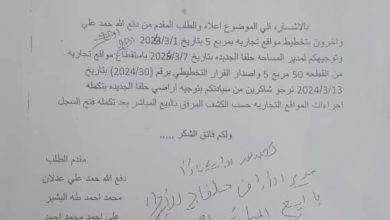 بالاشساره الي الموضوع اعلاه والطلب المقدم من دفع الله حمد علي
واخرون بتخطيط مواقع تجاريه بمربع 5 بتاريخ 2024/3/1
وتوجيهكم لمدير المساحه حلفا الجديده بتاريخ 2024/3/7 باستقطاع مواقع تجاريه
من القطعه 50 مربع 5 واصدار القرار التخطيطي برقم (2024/30) بتاريخ
2024/3/13 نرجو شاكرين من سيادتكم بتوجيه اراضي حلفا الجديده بتكمله
اجراءات المواقع التجاريه حسب الكشف المرفق بالبيع المباشر بعد تكمله فتح السجل
ولكم فائق الشكر
مقدم الطلب
دفع الله حمد علي عدلان
محمد احمد طه البشير
علي احمد محمد احمد